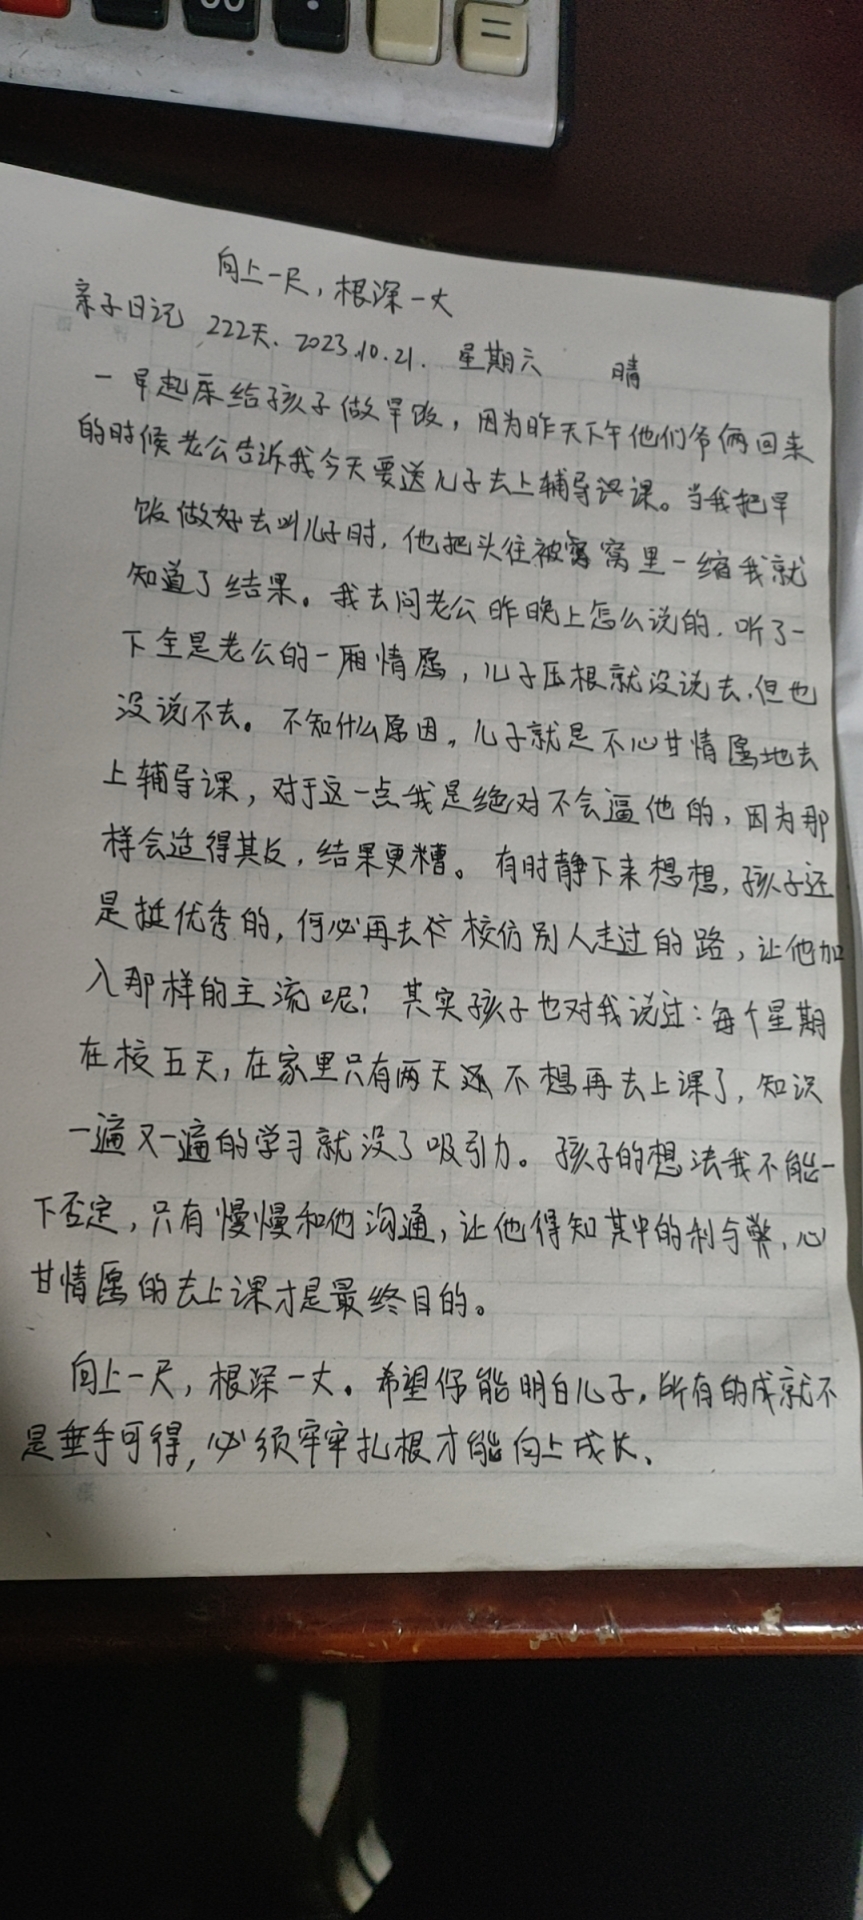 向上一尺，根深一丈
亲子日记 222天. 2023.10.21. 星期六 晴
一早起床给孩子做早饭，因为昨天下午他们爷俩回来
的时候老公告诉我今天要送儿子去上辅导课。当我把早
饭做好去叫儿子时，他把头往被窝里一缩我就
知道了结果。我去问老公昨晚上怎么说的.听了一
下全是老公的一厢情愿，儿子压根就没说去.但也
没说不去。不知什么原因，儿子就是不心甘情愿地去
上辅导课，对于这一点我是绝对不会逼他的，因为那
样会适得其反，结果更糟。有时静下来想想，孩子还
是挺优秀的，何必再去仿别人走过的路，让他加
入那样的主流呢？其实孩子也对我说过：每个星期
在校五天，在家里只有两天还不想再去上课了，知识
一遍又一遍的学习就没了吸引力。孩子的想法我不能一
下否定，只有慢慢和他沟通，让他得知其中的利与弊、心
甘情愿的去上课才是最终目的。
向上一尺，根深一丈。希望你能明白儿子，所有的成就不
是垂手可得，必须牢牢扎根才能向上成长、
=